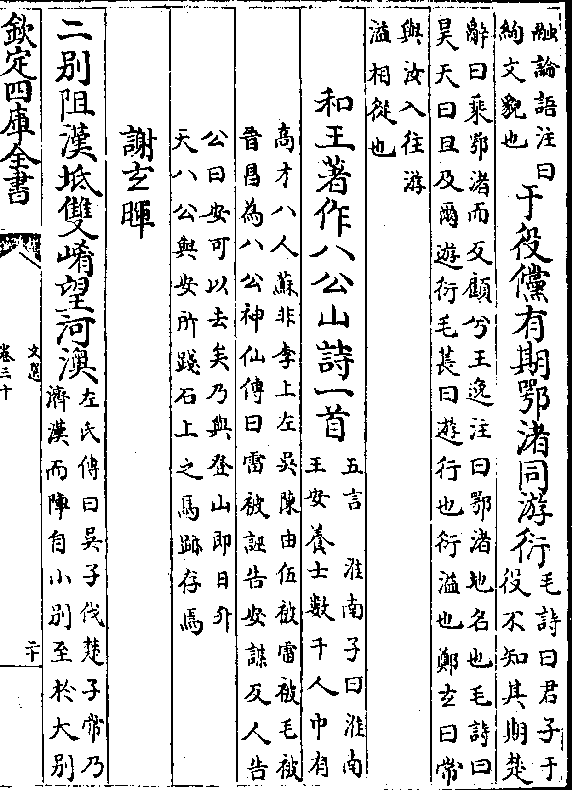 融論語注曰
絢文貌也
于役儻有期鄂渚同游衍
毛詩曰君子于
役不知其期楚
辭曰乘鄂渚而反顧兮王逸注曰鄂渚地名也毛詩曰
昊天曰旦及爾遊衍毛萇曰遊行也衍溢也鄭玄曰常
與汝入往游
溢相從也
和王著作八公山詩一首
五言 淮南子曰淮南
王安養士數千人中有
高才八人蘇非李上左吳陳由伍被雷被毛被
晉昌為八公神仙傳曰雷被誣告安謀反人告
公曰安可以去矣乃與登山即日升
天八公與安所踐石上之馬跡存焉
謝玄暉
二别阻漢坻雙崤望河澳
左氏傳曰吳子伐楚子常乃
濟漢而陣自小别至於大别
欽定四庫全書
文選
卷三十
二十